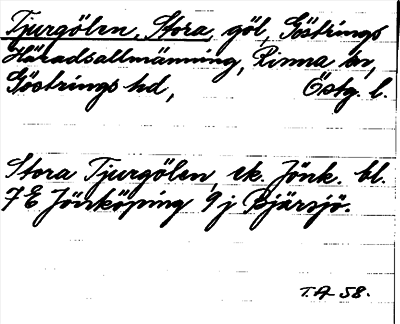 Tjurgölen, Stora, göl, Göstrings
Häradsallmänning, Rinna sn,
Göstrings hd, Östg. l.
Stora Tjurgölen, ek. Jönk. bl.
7E Jönköping 9j Bjärsjö.
T.A 58.